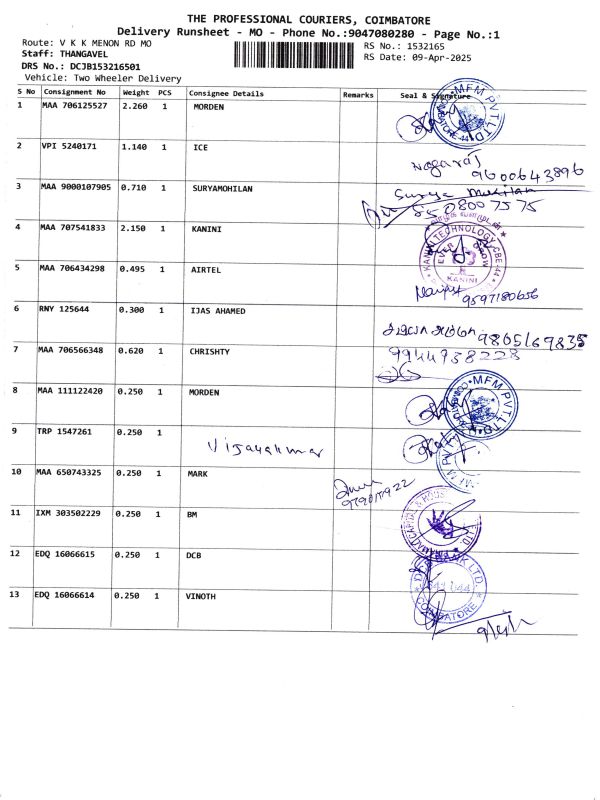 THE PROFESSIONAL COURIERS, COIMBATORE
Delivery Runsheet - MO - Phone No.:9047080280 - Page No.:1
Route: V K K MENON RD MO
RS No.: 1532165
Staff: THANGAVEL
RS Date: 09-Apr-2025
DRS No.: DCJB153216501
Vehicle: Two Wheeler Delivery
S No Consignment No Weight PCS Consignee Details Remarks Seal & Signature
1 MAA 706125527 2.260 1 MORDEN
MFM PVT LTD
COIMBATORE-44
2 VPI 5240171 1.140 1 ICE
Nagaraj
9600643896
3 MAA 9000107905 0.710 1 SURYAMOHILAN
Surya Mohilan
5508007575
4 MAA 707541833 2.150 1 KANINI
KANINI TECHNOLOGY CBE-44
EVER GROW
KANINI
5 MAA 706434298 0.495 1 AIRTEL
9597180656
6 RNY 125644 0.300 1 IJAS AHAMED
9865169835
7 MAA 706566348 0.620 1 CHRISHTY
9944738228
8 MAA 111122420 0.250 1 MORDEN
MFM PVT LTD
9 TRP 1547261 0.250 1
Vijayakumar
10 MAA 650743325 0.250 1 MARK
11 IXM 303502229 0.250 1 BM
12 EDQ 16066615 0.250 1 DCB
DCB BANK LTD.
COIMBATORE
13 EDQ 16066614 0.250 1 VINOTH